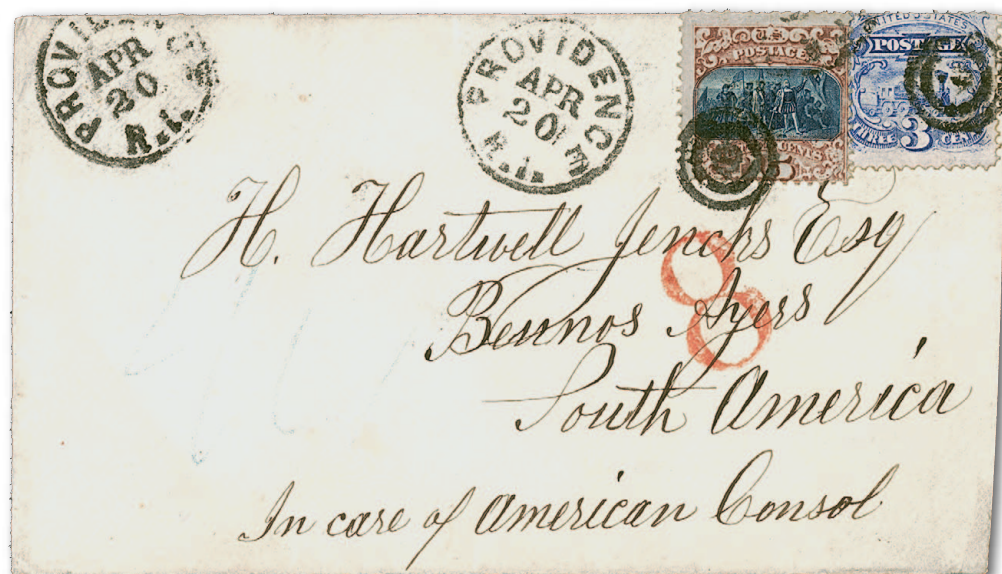 PROVIDENCE
APR
20
R.I.
PROVIDENCE
APR
20
R.I.
U.S.
POSTAGE
CENTS
UNITED STATES
POSTAGE
THREE 3 CENTS
H. Hartwell Jencks Esq
8
Beunos Ayers
South America
In care of American Consol